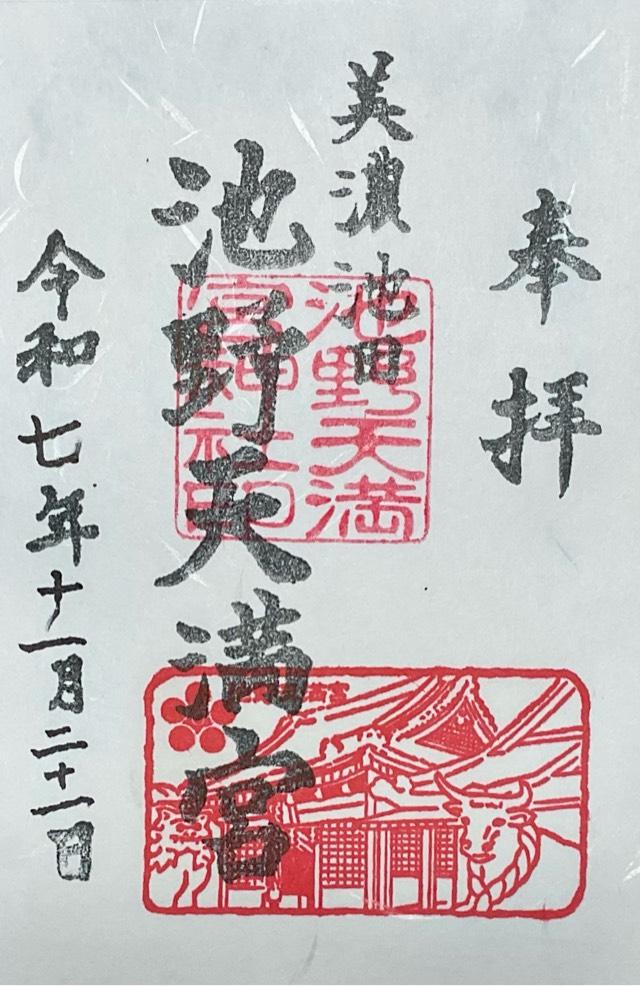 奉拝
美濃池田
池野天満宮
池野天満
宮神社印
令和七年十一月二十一日